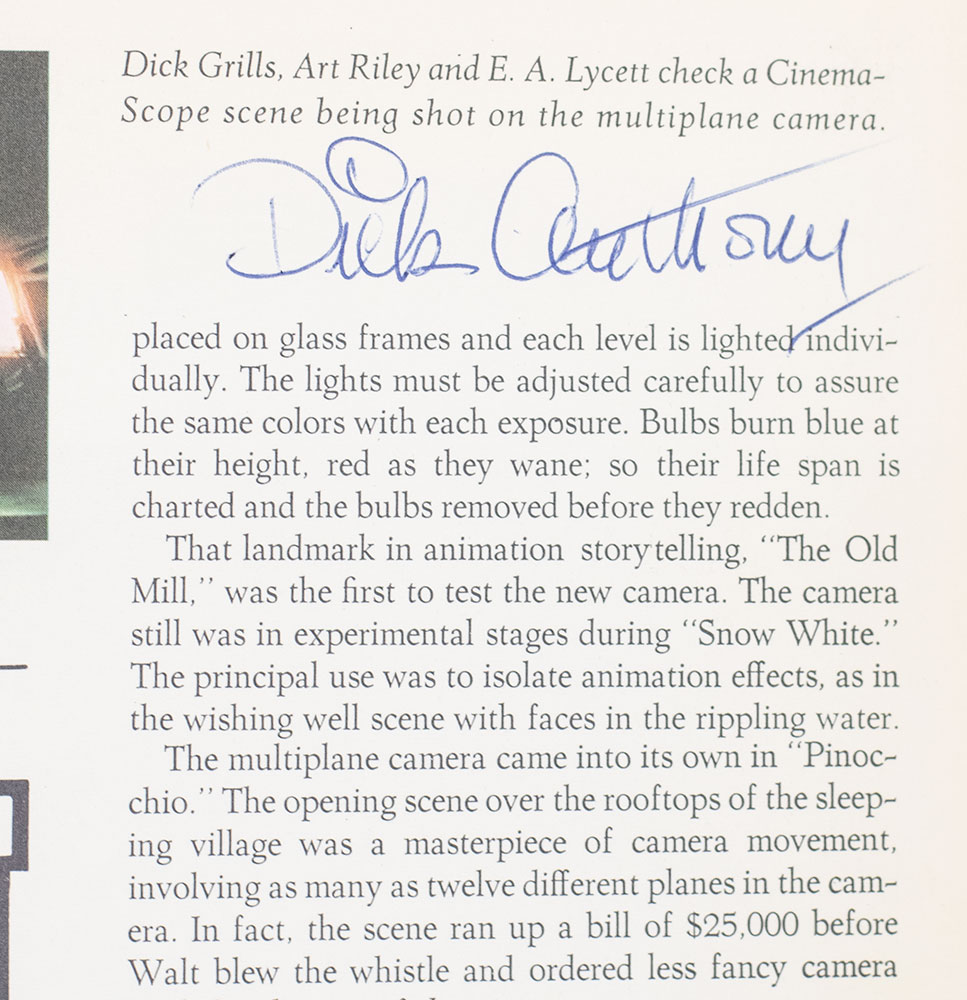 Dick Grills, Art Riley and E. A. Lycett check a Cinema-
Scope scene being shot on the multiplane camera.
Dick Anthony
placed on glass frames and each level is lighted indivi-
dually. The lights must be adjusted carefully to assure
the same colors with each exposure. Bulbs burn blue at
their height, red as they wane; so their life span is
charted and the bulbs removed before they redden.
That landmark in animation storytelling, “The Old
Mill,” was the first to test the new camera. The camera
still was in experimental stages during “Snow White.”
The principal use was to isolate animation effects, as in
the wishing well scene with faces in the rippling water.
The multiplane camera came into its own in “Pinoc-
chio.” The opening scene over the rooftops of the sleep-
ing village was a masterpiece of camera movement,
involving as many as twelve different planes in the cam-
era. In fact, the scene ran up a bill of $25,000 before
Walt blew the whistle and ordered less fancy camera